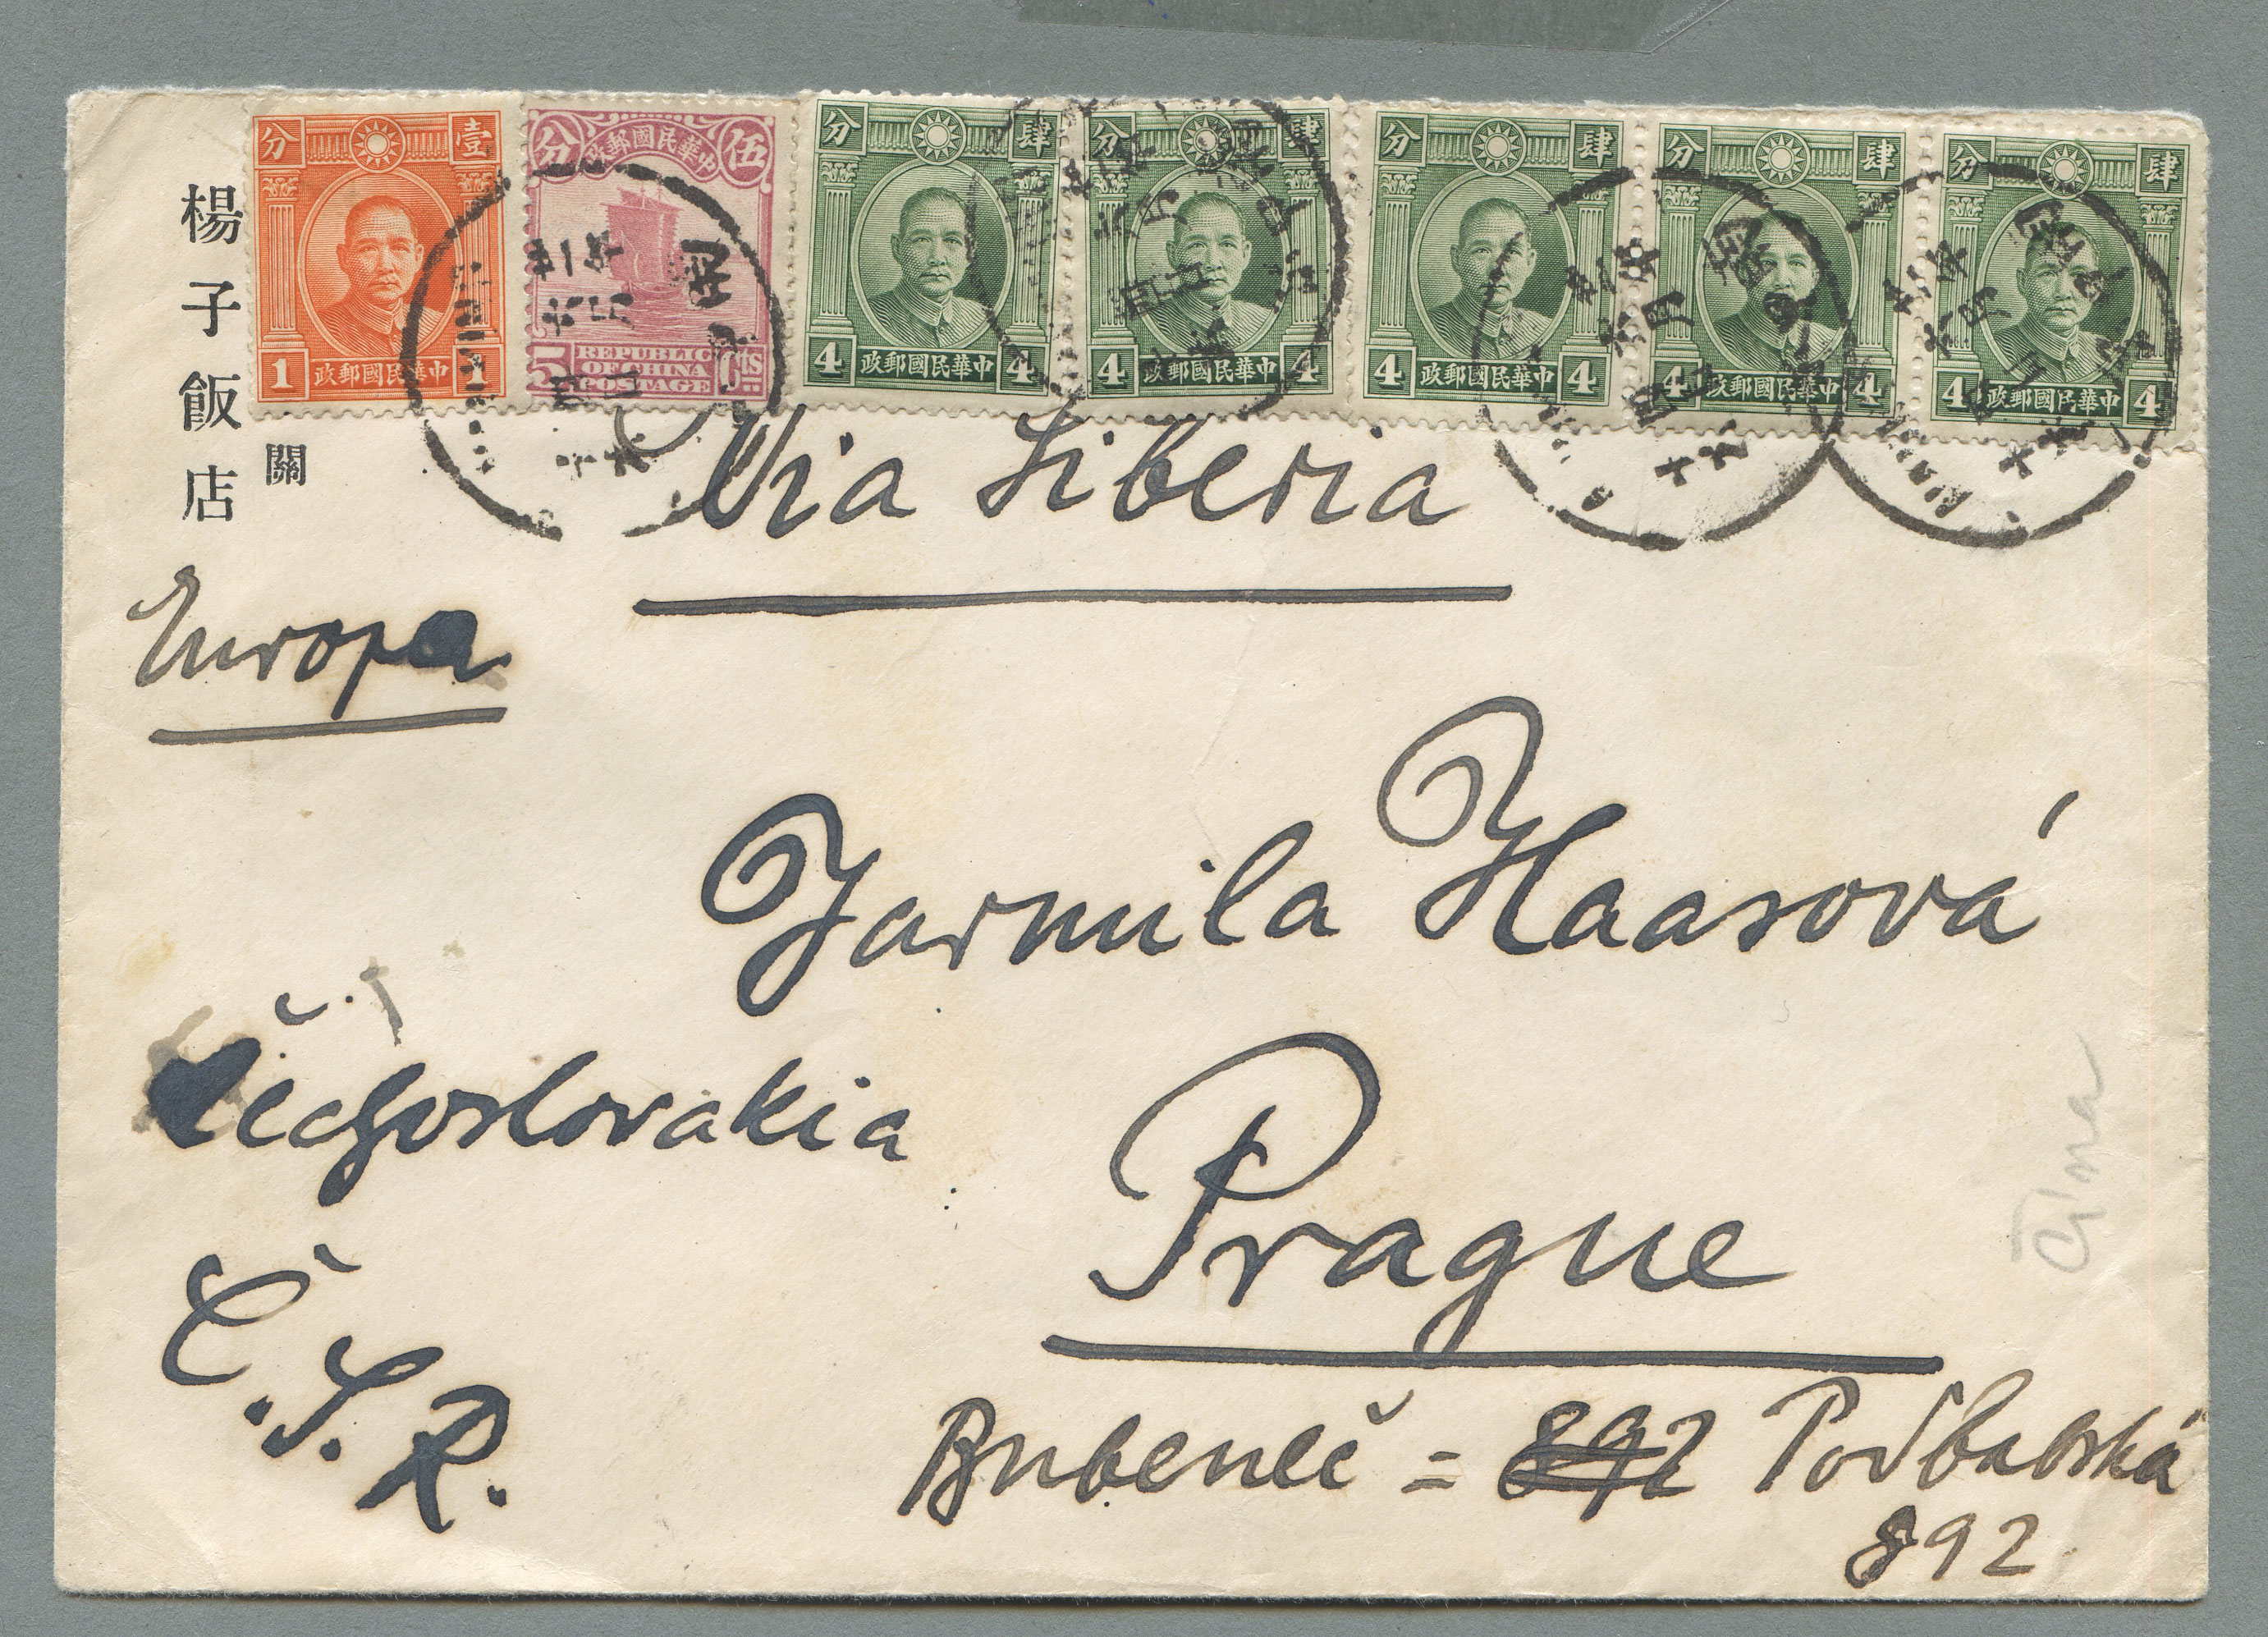 楊子飯店
關
分 壹
1 中華民國郵政 1
分 中華民國郵政 伍
5 REPUBLIC OF CHINA POSTAGE Cts
分 肆
4 中華民國郵政 4
分 肆
4 中華民國郵政 4
分 肆
4 中華民國郵政 4
分 肆
4 中華民國郵政 4
分 肆
4 中華民國郵政 4
Via Siberia
Europa
Jarmila Haasová
Čechoslovakia
Prague
Č.S.R.
Bubeneč = 892 Podbabská
892
Čína